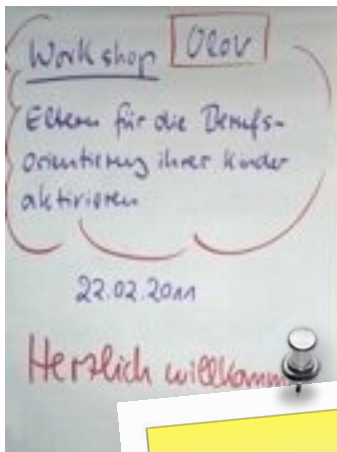 Workshop OloV
Eltern für die Berufs-
orientierung ihrer Kinder
aktivieren
22.02.2011
Herzlich willkomm